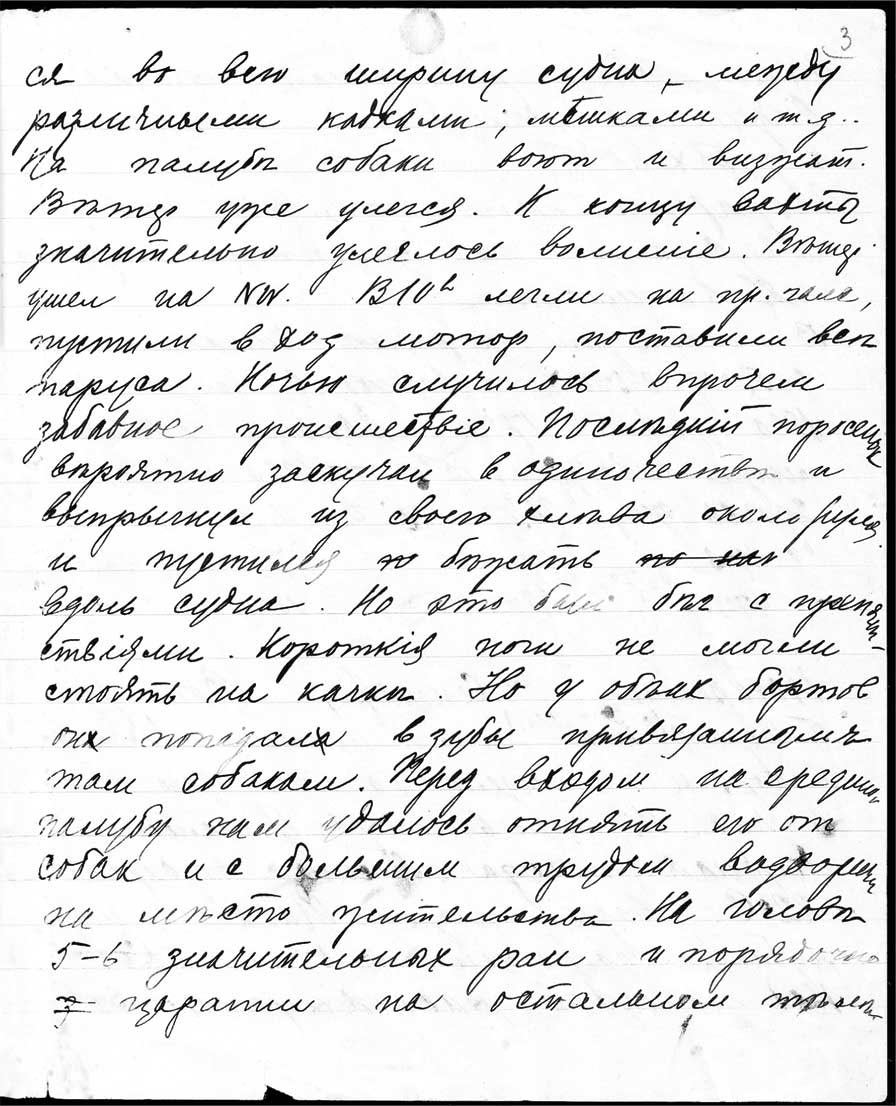 3
ся во всю ширину судна, между
различными кадками, мешками и т.д..
На палубѣ собаки воют и визжат.
Вѣтер уже улегся. К концу вахты
значительно улеялось волнение. Вѣтер
ушел на NW. В 10ʰ легли на пр. галс,
пустили в ход мотор, поставили всѣ
паруса. Ночью случилось впрочем
забавное происшествіе. Послѣдній поросенок
вѣроятно заскучал в одиночествѣ и
выпрыгнул из своего хлѣва около
и пустился бѣжать по нап
вдоль судна. Но это был бѣг с препят-
ствіями. Короткія ноги не могли
стоять на качкѣ. Но у обѣих бортов
он попадал в зубы привязанным
там собакам. Перед входом на средню
палубу нам удалось отнять его от
собак и с большим трудом водворить
на мѣсто жительства. На головѣ
5-6 значительных ран и порядочно
царапин на остальном тѣлѣ